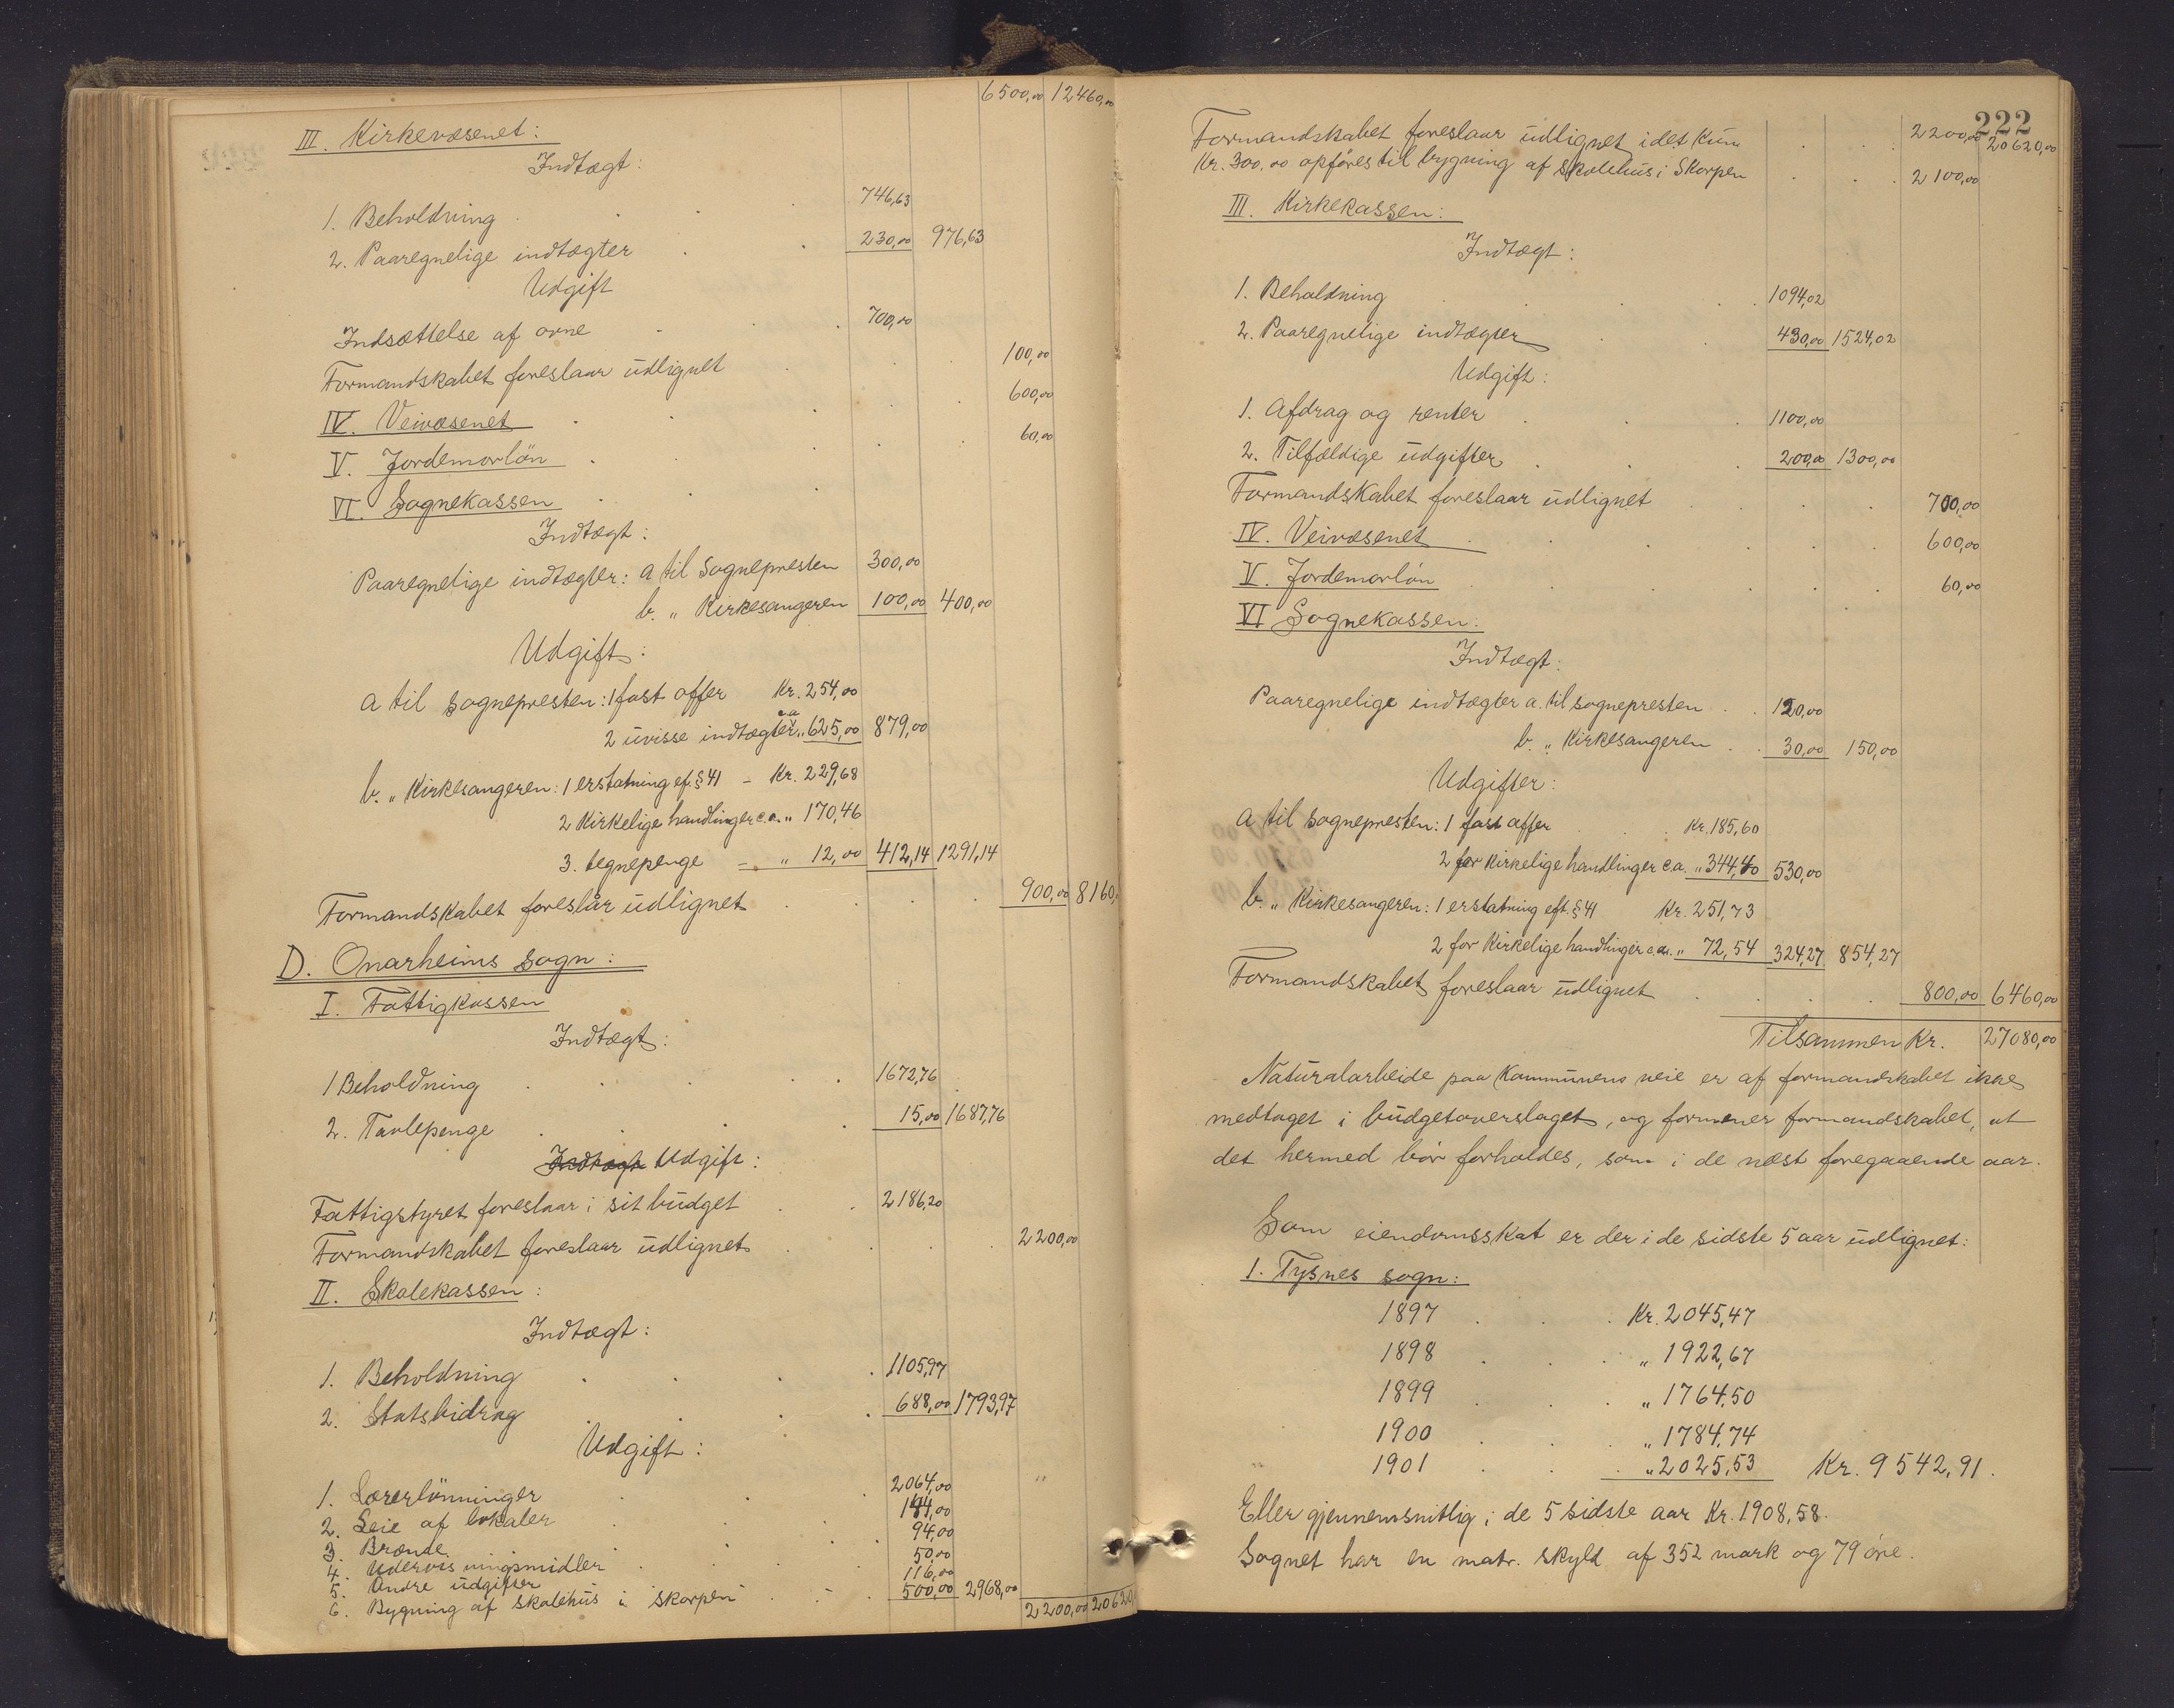 6500,00 12460,00
III. Kirkevæsenet:
Indtægt:
1. Beholdning 746,63
2. Paaregnelige indtægter 230,00 976,63
Udgift
Indsættelse af ovne 700,00
Formandskabet foreslaar udlignet 100,00
IV. Veivæsenet 600,00
V. Jordemorløn 60,00
VI. Sognekassen
Indtægt:
Paaregnelige indtægter: a til sognepresten 300,00
b. „ Kirkesangeren 100,00 400,00
Udgift:
a til sognepresten: 1 fast offer Kr. 254,00
2 uvisse indtægter c.a „ 625,00 879,00
b. „ Kirkesangeren: 1 erstatning ef. § 41 – Kr. 229,68
2 Kirkelige handlinger c.a. „ 170,46
3. tegnepenge – „ 12,00 412,14 1291,14
Formandskabet foreslår udlignet 900,00 8160,
D. Onarheims sogn:
I. Fattigkassen
Indtægt:
1 Beholdning 1672,76
2. Tavlepenge 15,00 1687,76
Indtægt Udgift:
Fattigstyret foreslaar i sit budget 2186,20
Formandskabet foreslaar udlignet 2200,00
II. Skolekassen:
Indtægt:
1. Beholdning 1105,97
2. Statsbidrag 688,00 1793,97
Udgift:
1. Lærerlønninger 2064,00
2. Leie af lokaler 144,00
3. Brænde 94,00
4. Udervisningsmidler 50,00
5. Andre udgifter 116,00
6. Bygning af skolehus i Skorpen 500,00 2968,00
2200,00 20620,
222
2200,00 20620,00
Formandskabet foreslaar udlignet idet kun
Kr. 300,00 opføres til bygning af skolehus i Skorpen 2100,00
III. Kirkekassen:
Indtægt:
1. Beholdning 1094,02
2. Paaregnelige indtægter 430,00 1524,02
Udgift:
1. Afdrag og renter 1100,00
2. Tilfældige udgifter 200,00 1300,00
Formandskabet foreslaar udlignet 700,00
IV. Veivæsenet 600,00
V. Jordemorløn 60,00
VI Sognekassen:
Indtægt:
Paaregnelige indtægter a. til sognepresten 120,00
b. „ Kirkesangeren 30,00 150,00
Udgifter:
a til sognepresten: 1 fast offer Kr. 185,60
2 for Kirkelige handlinger c.a. „ 344,40 530,00
b. „ Kirkesangeren: 1 erstatning eft. § 41 Kr. 251,73
2 for Kirkelige handlinger c.a. „ 72,54 324,27 854,27
Formandskabet foreslaar udlignet 800,00 6460,00
Tilsammen Kr. 27080,00
Naturalarbeide paa Kommunens veie er af formandskabet ikke
medtaget i budgetoverslaget, og formener formandskabet, at
det hermed bør forholdes, som i de næst foregaaende aar.
Som eiendomsskat er der i de sidste 5 aar udlignet:
1. Tysnes sogn:
1897 Kr. 2045,47
1898 „ 1922,67
1899 „ 1764,50
1900 „ 1784,74
1901 „ 2025,53 Kr. 9542,91.
Eller gjennemsnitlig i de 5 sidste aar Kr. 1908,58.
Sognet har en matr. skyld af 352 mark og 79 øre.